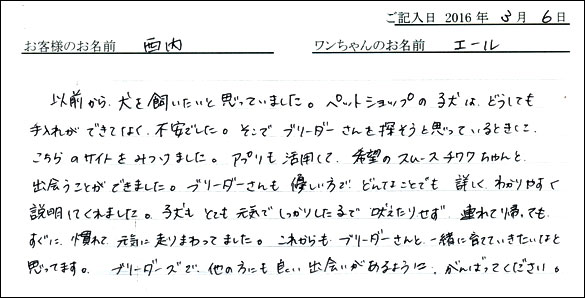 ご記入日 2016 年 3 月 6 日
お客様のお名前 西内 ワンちゃんのお名前 エール
以前から、犬を飼いたいと思っていました。ペットショップの子犬は、どうしても
手入れができてなく、不安でした。そこで ブリーダーさんを探そうと思っているときに、
こちらのサイトをみつけました。アプリも活用して、希望のスムースチワワちゃんと、
出会うことができました。ブリーダーさんも優しい方で どんなことでも 詳しく、わかりやすく
説明してくれました。子犬も とても 元気で しっかりした子で 吠えたりせず、連れて帰っても、
すぐに、慣れて、元気に走りまわってました。これからも ブリーダーさんと、一緒に育てていきたいなと
思ってます。 ブリーダーズで、他の方にも良い出会いがあるように、がんばってください。